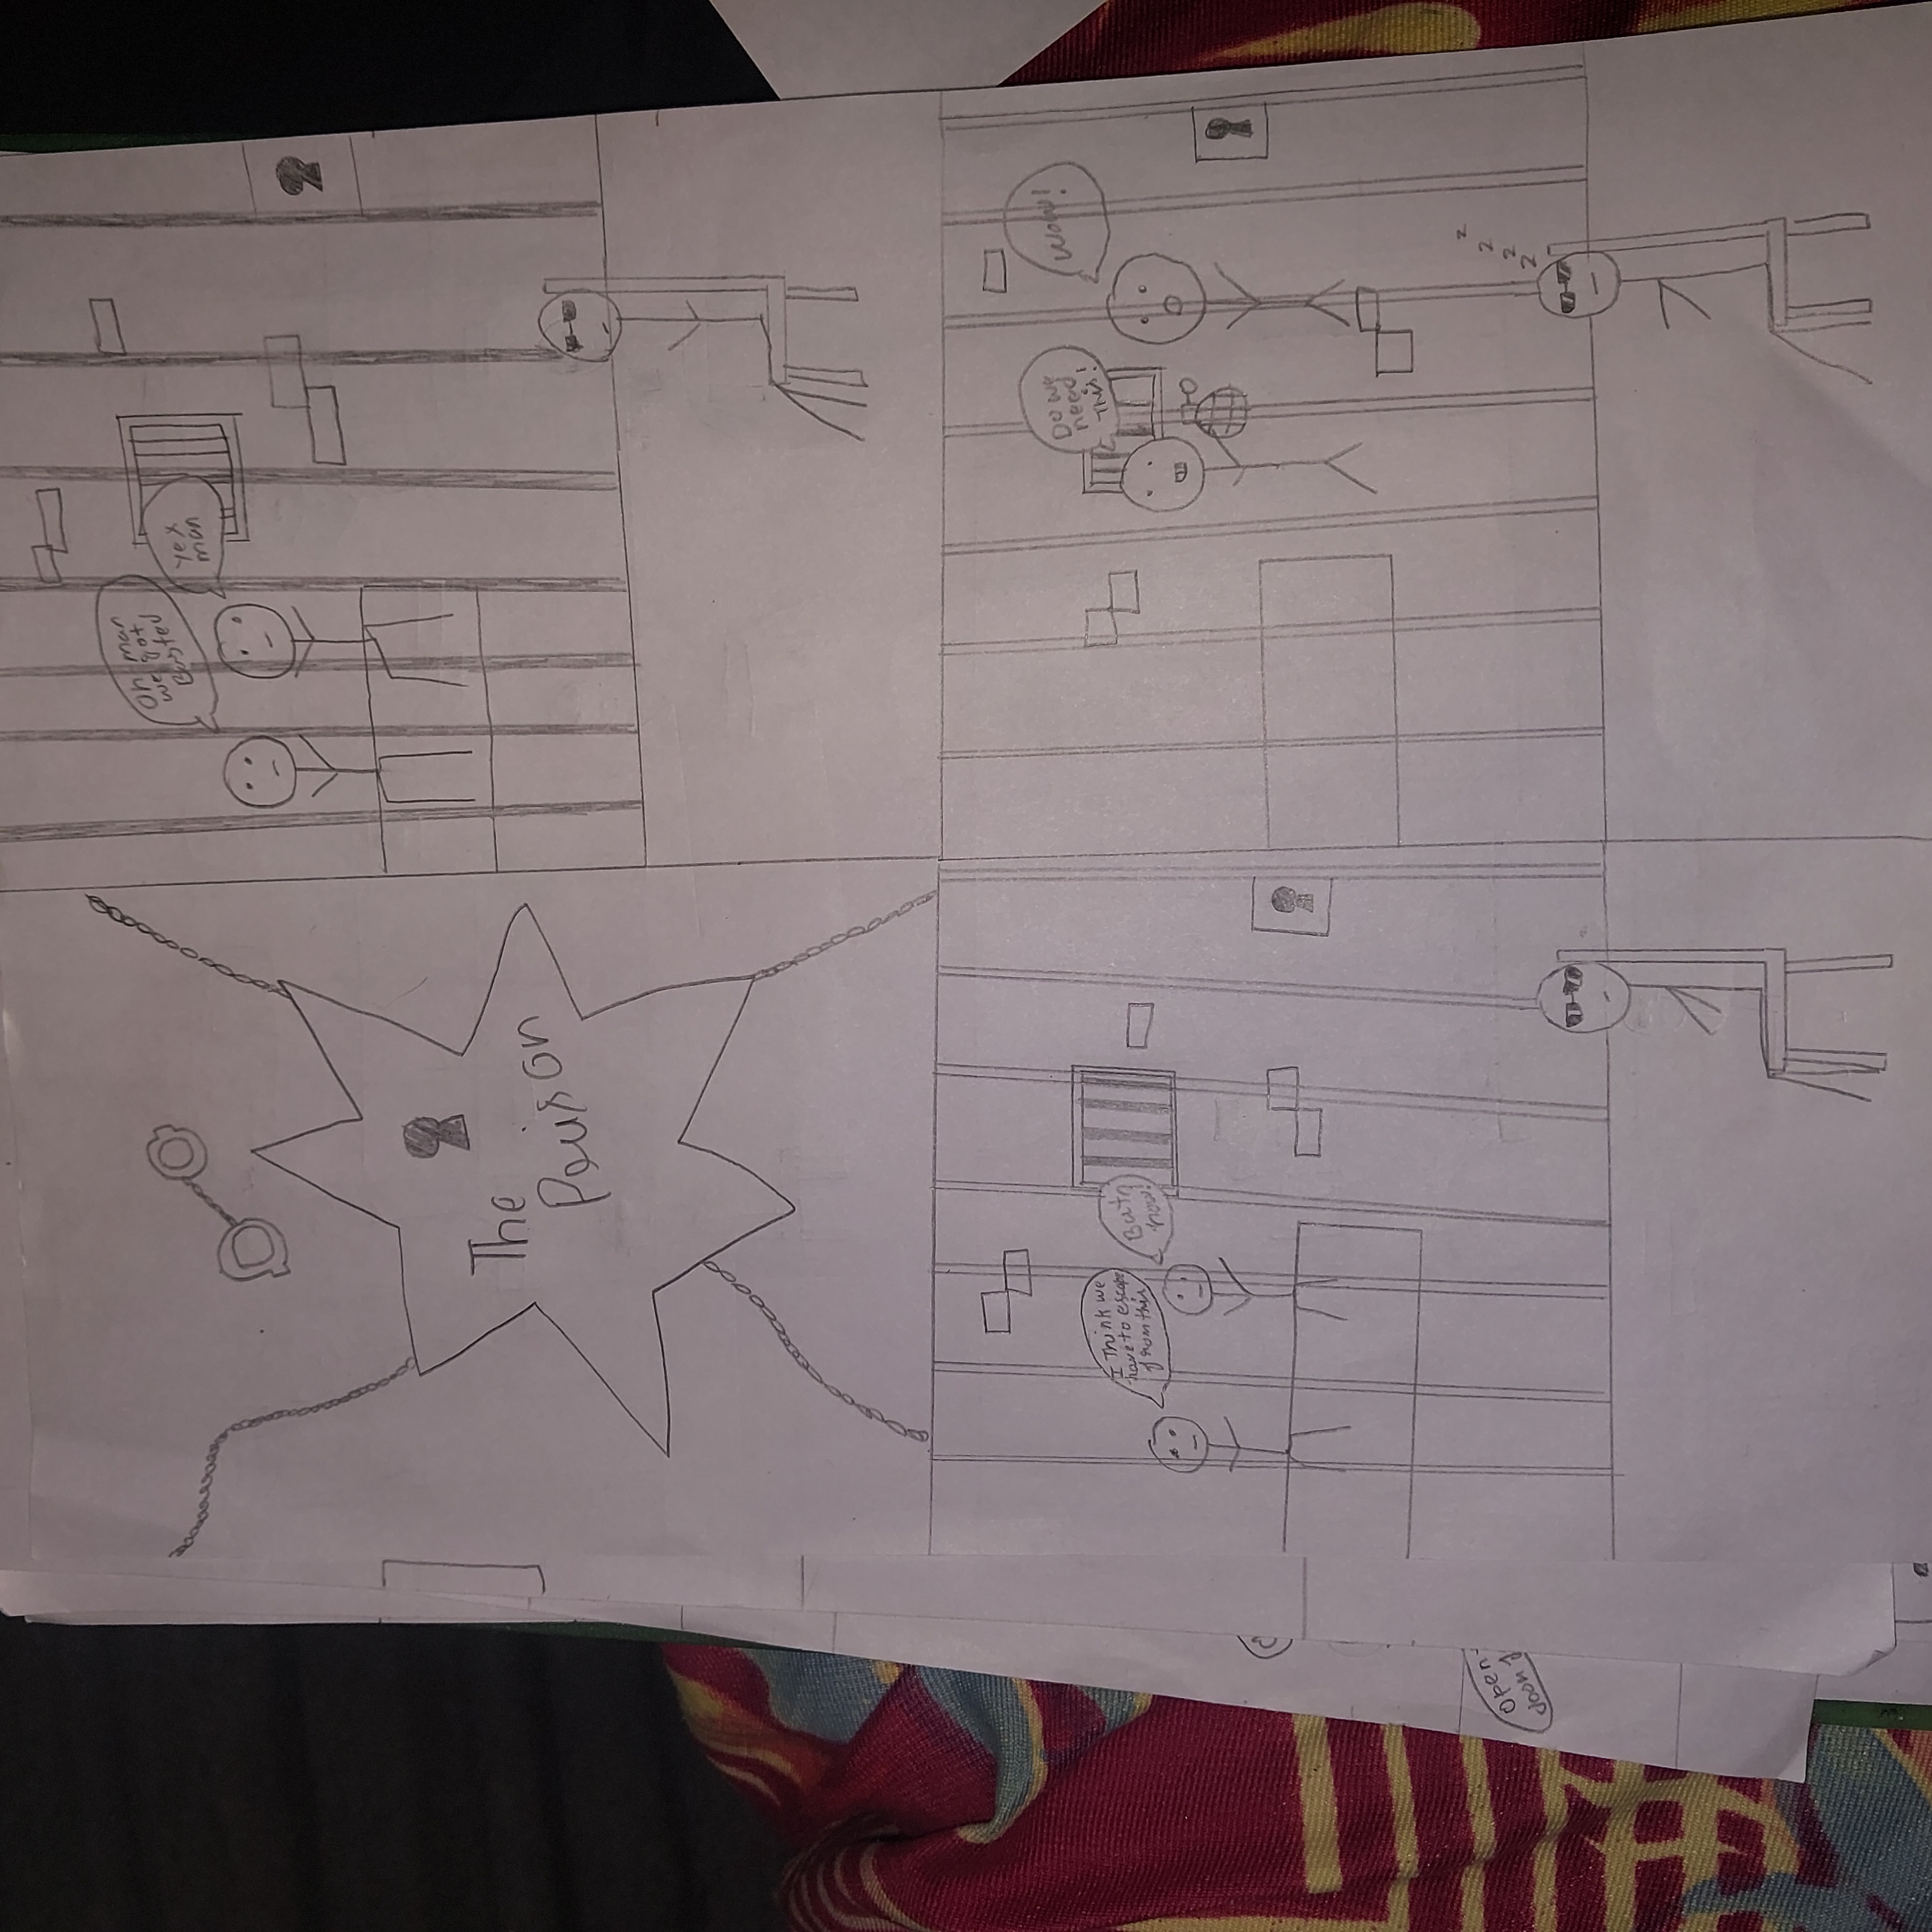 The
Peuison
Oh man
we got
Busted
Yex
man
I Think we
have to escape
from this
But
how!
Do we
need
This!
Wow!
z
z
z
z
Open
doon